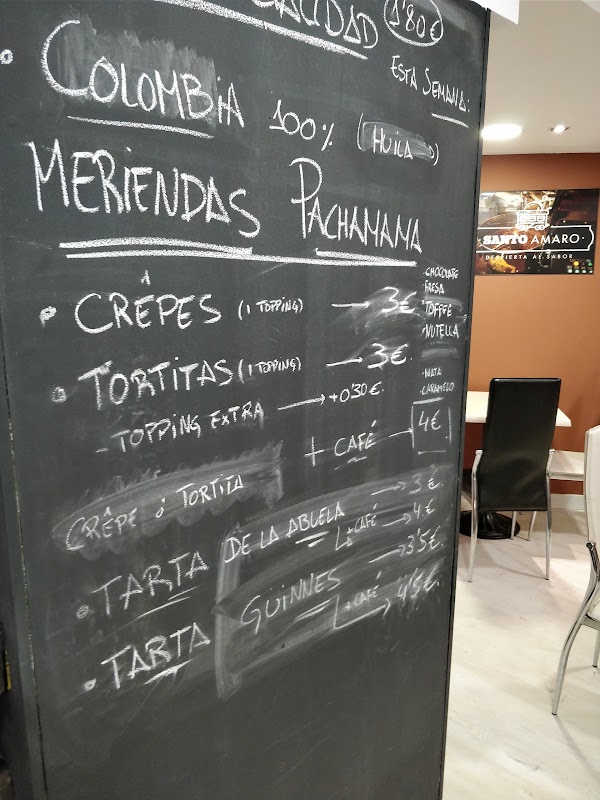 CALIDAD 1'80€
ESTA SEMANA:
COLOMBIA 100% (HUILA)
MERIENDAS PACHAMAMA
CRÊPES (1 TOPPING) → 3€
TORTITAS (1 TOPPING) → 3€
- TOPPING EXTRA → +0'30€
·CHOCOLATE
·FRESA
·TOFFEE
·NUTELLA
·NATA
·CARAMELO
CRÊPE ó TORTITA + CAFÉ → 4€
TARTA DE LA ABUELA → 3€
+CAFÉ → 4€
TARTA GUINNES → 3'5€
+CAFÉ → 4'5€
SANTO AMARO
DESPIERTA AL SABOR